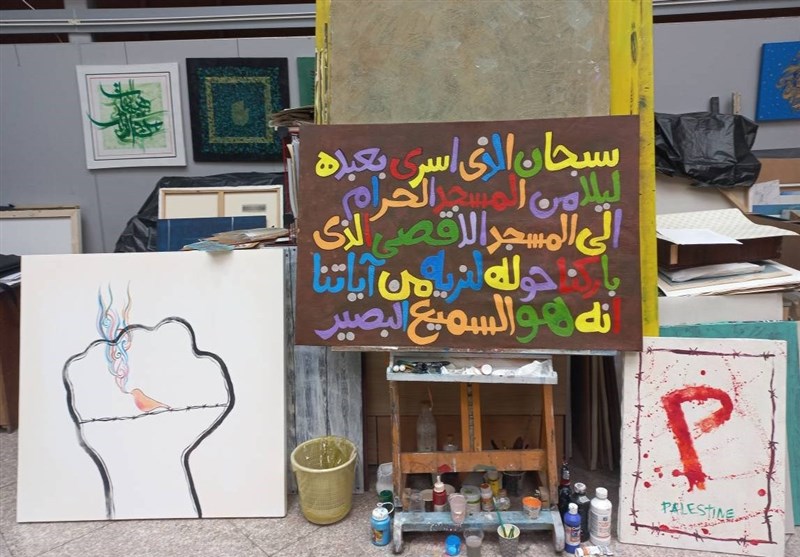 سبحان الذى اسرى بعبده
ليلا من المسجد الحرام
الى المسجد الاقصى الذى
باركنا حوله لنريه من آياتنا
انه هو السميع البصير
P
PALESTINE